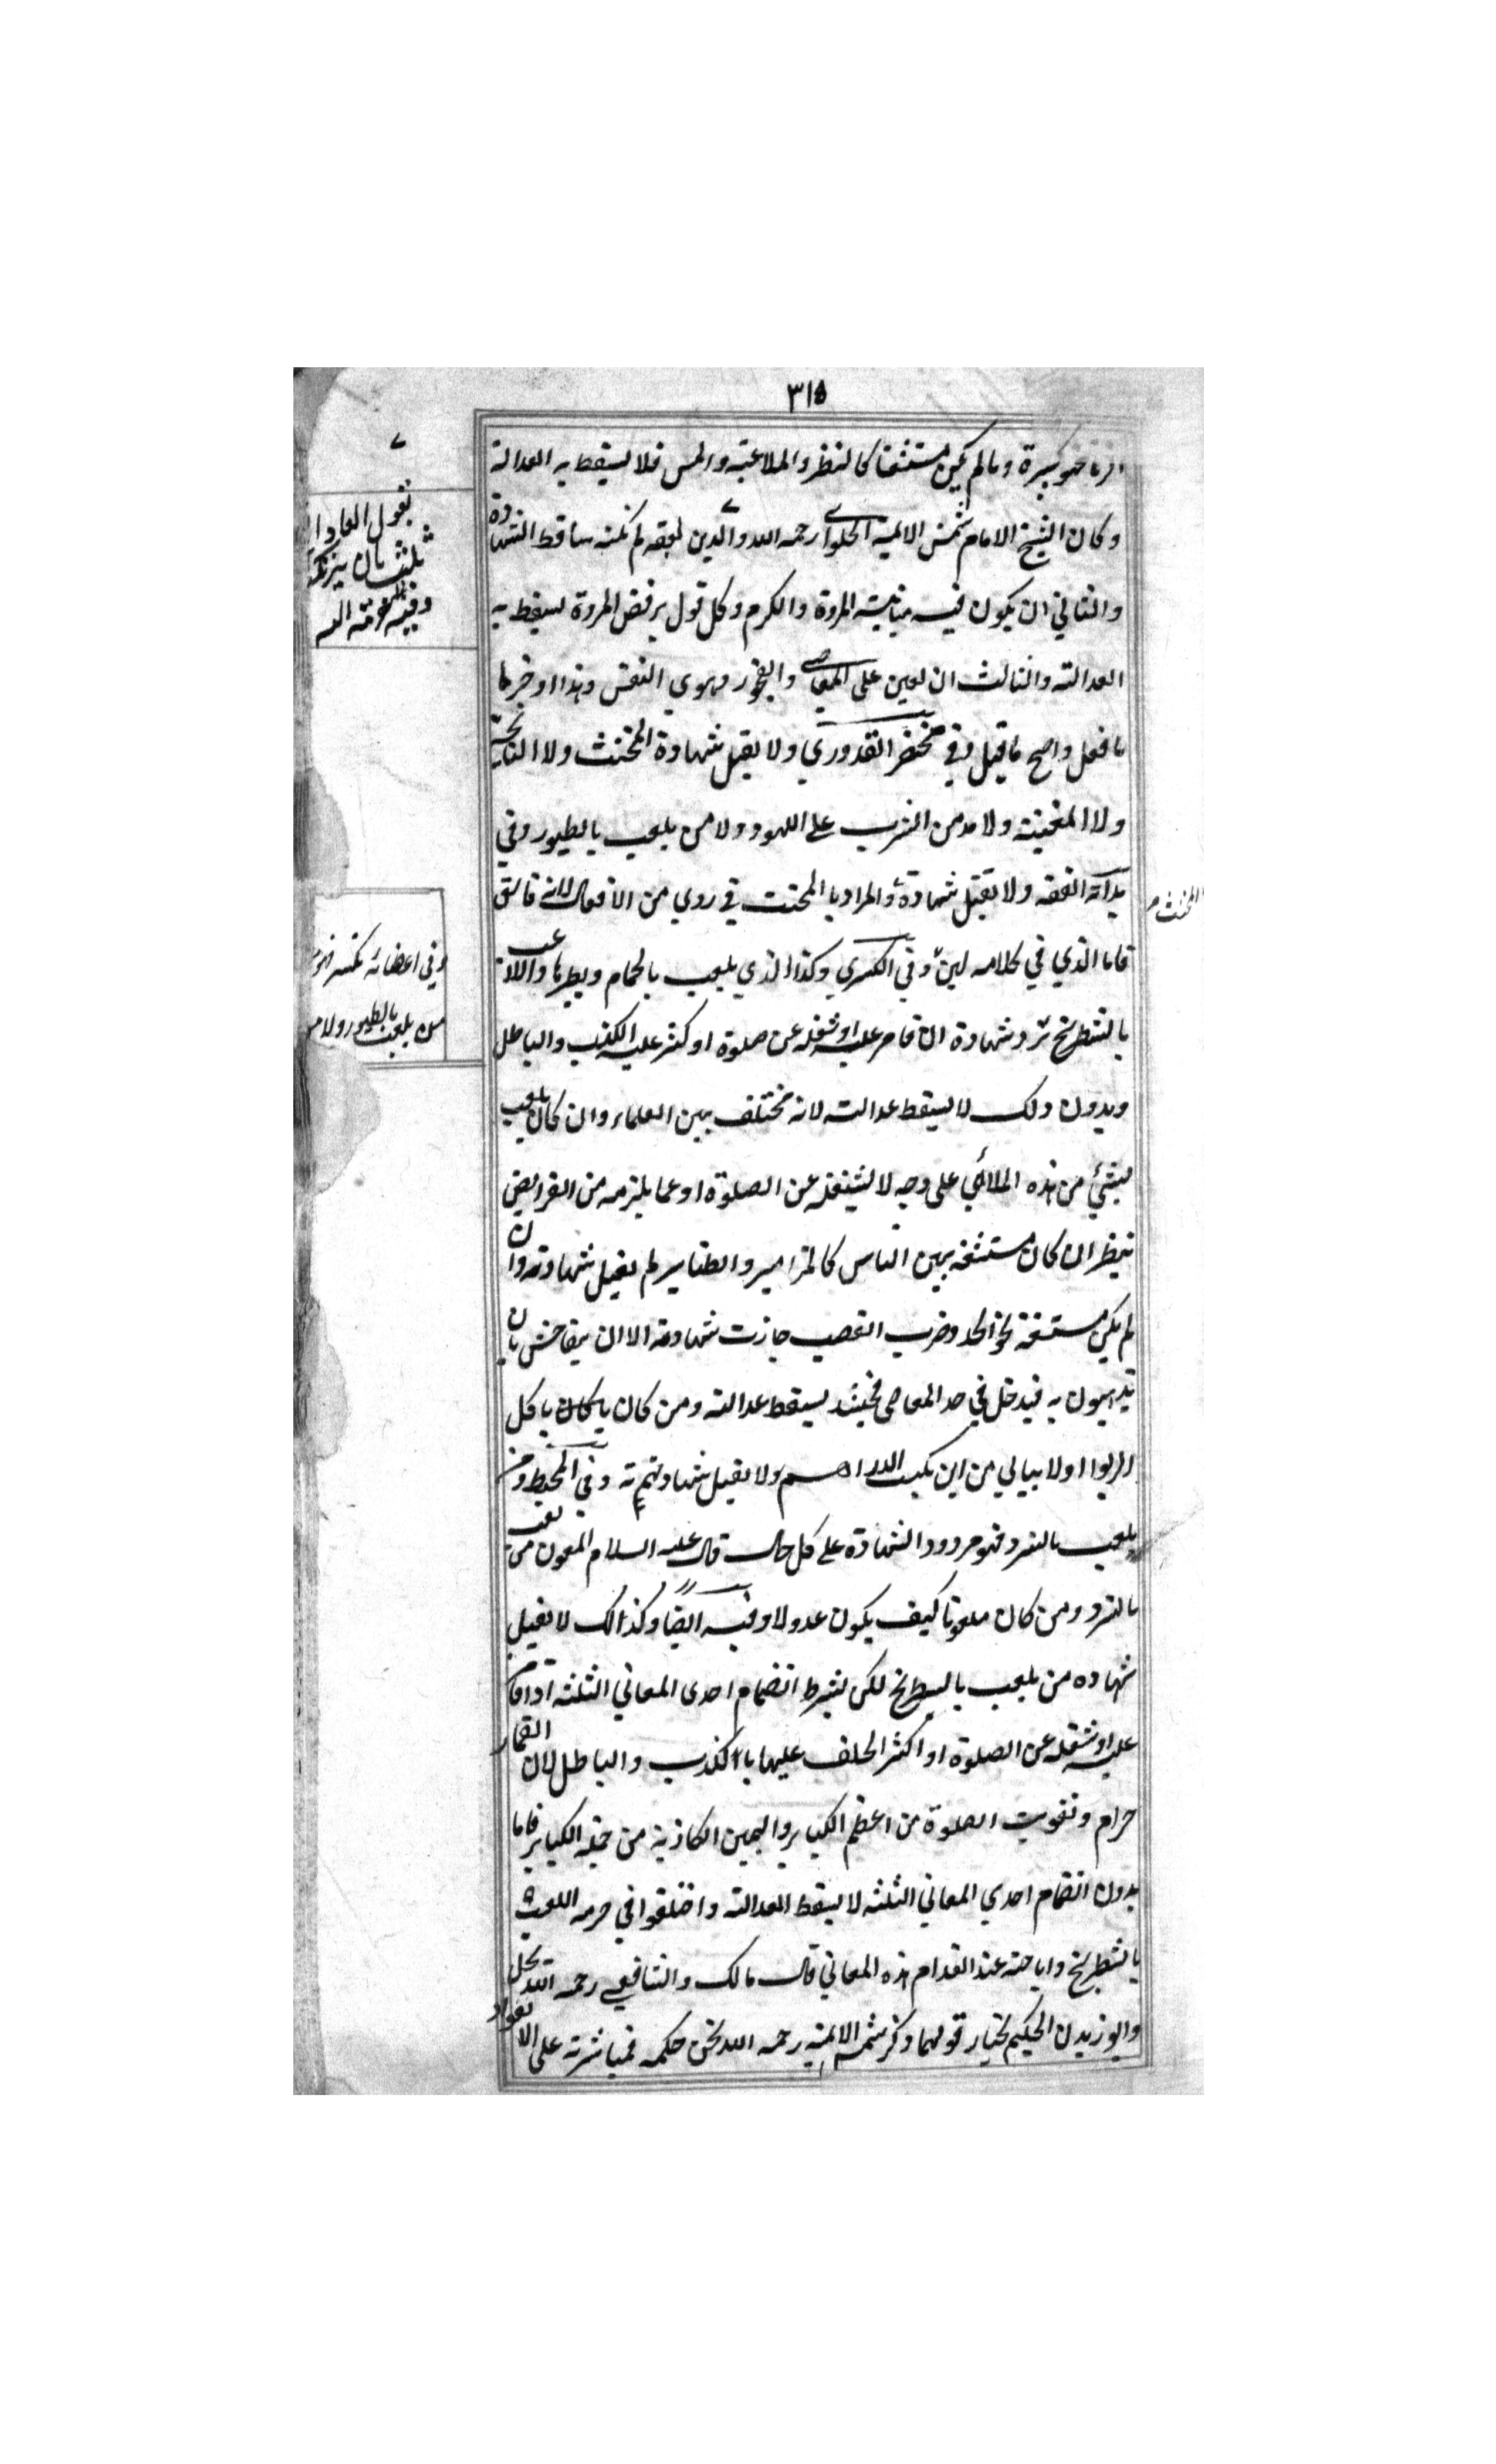 ٣١٥
الزنا فهو كبيرة وما لم يكن مستشنعا كالنظر والملاعبة والمس فلا يسقط به العدالة
وكان الشيخ الامام شمس الائمة الحلواي رحمه الله والدين
والثاني ان يكون فيه المروة والكرم وكل قول يرفض المروة يسقط به
العدالة والثالث ان يعين على المعاصي والفجور وهوي النفس وهذا اوخرها
ما فعل واصح ما قيل وفي مختصر القدوري ولا يقبل شهادة المخنث ولا النايحة
ولا المغنية ولا مدمن الشرب على اللهو ولا من يلعب بالطيور وفي
بداية الفقه ولا تقبل شهادة والمراد بالمخنث في روي من الافعال لانه فاسق
فاما الذي في كلامه لين وفي الكبري وكذا الذي يلعب بالحمام ويطيرها واللاعب
بالشطرنج ترد شهادة ان قامر عليه او شغله عن صلوة او كثر عليه الكذب والباطل
وبدون ذلك لا يسقط عدالته لانه مختلف بين العلماء وان كان يلعب
بشيء من هذه الملاهي على وجه لا يشغله عن الصلوة او عما يلزمه من الفرايض
ينظر ان كان مستشنعة بين الناس كالمزامير والطنابير لم يقبل شهادته وان
لم يكن مستشنعة نحو الحد وضرب القصب جازت شهادته الا ان يتفاحش بان
به فيدخل في حد المعاصي فحينئذ يسقط عدالته ومن كان يا كان ياكل
الربوا او لا يبالي من اين يكتسب الدراهم ولا يقبل شهادتهم وفي المحيط ومن
يلعب بالنرد فهو مردود الشهادة على كل حال قال عليه السلام الملعون من يلعب
بالنرد ومن كان ملعونا كيف يكون عدولا وفيه ايضا وكذالك لا يقبل
شهاده من يلعب بالشطرنج لكن بشرط انضمام احدى المعاني الثلثة اذا قامر
عليه او شغله عن الصلوة او اكثر الحلف عليها بالكذب والباطل لان القمار
حرام وتفويت الصلوة من اعظم الكباير واليمين الكاذبة من جملة الكباير فاما
بدون انضمام احدي المعاني الثلثة لا يسقط العدالة واختلفوا في حرمة اللعب
بالشطرنج واباحته عند انعدام هذه المعاني قال مالك والشافعي رحمه الله يحل
وابو زيد الحكيم يختار قولهما وذكر شمس الائمة رحمه الله
المخنث
وفي اعضائه تكسر فهو
من يلعب بالطيور ولا من